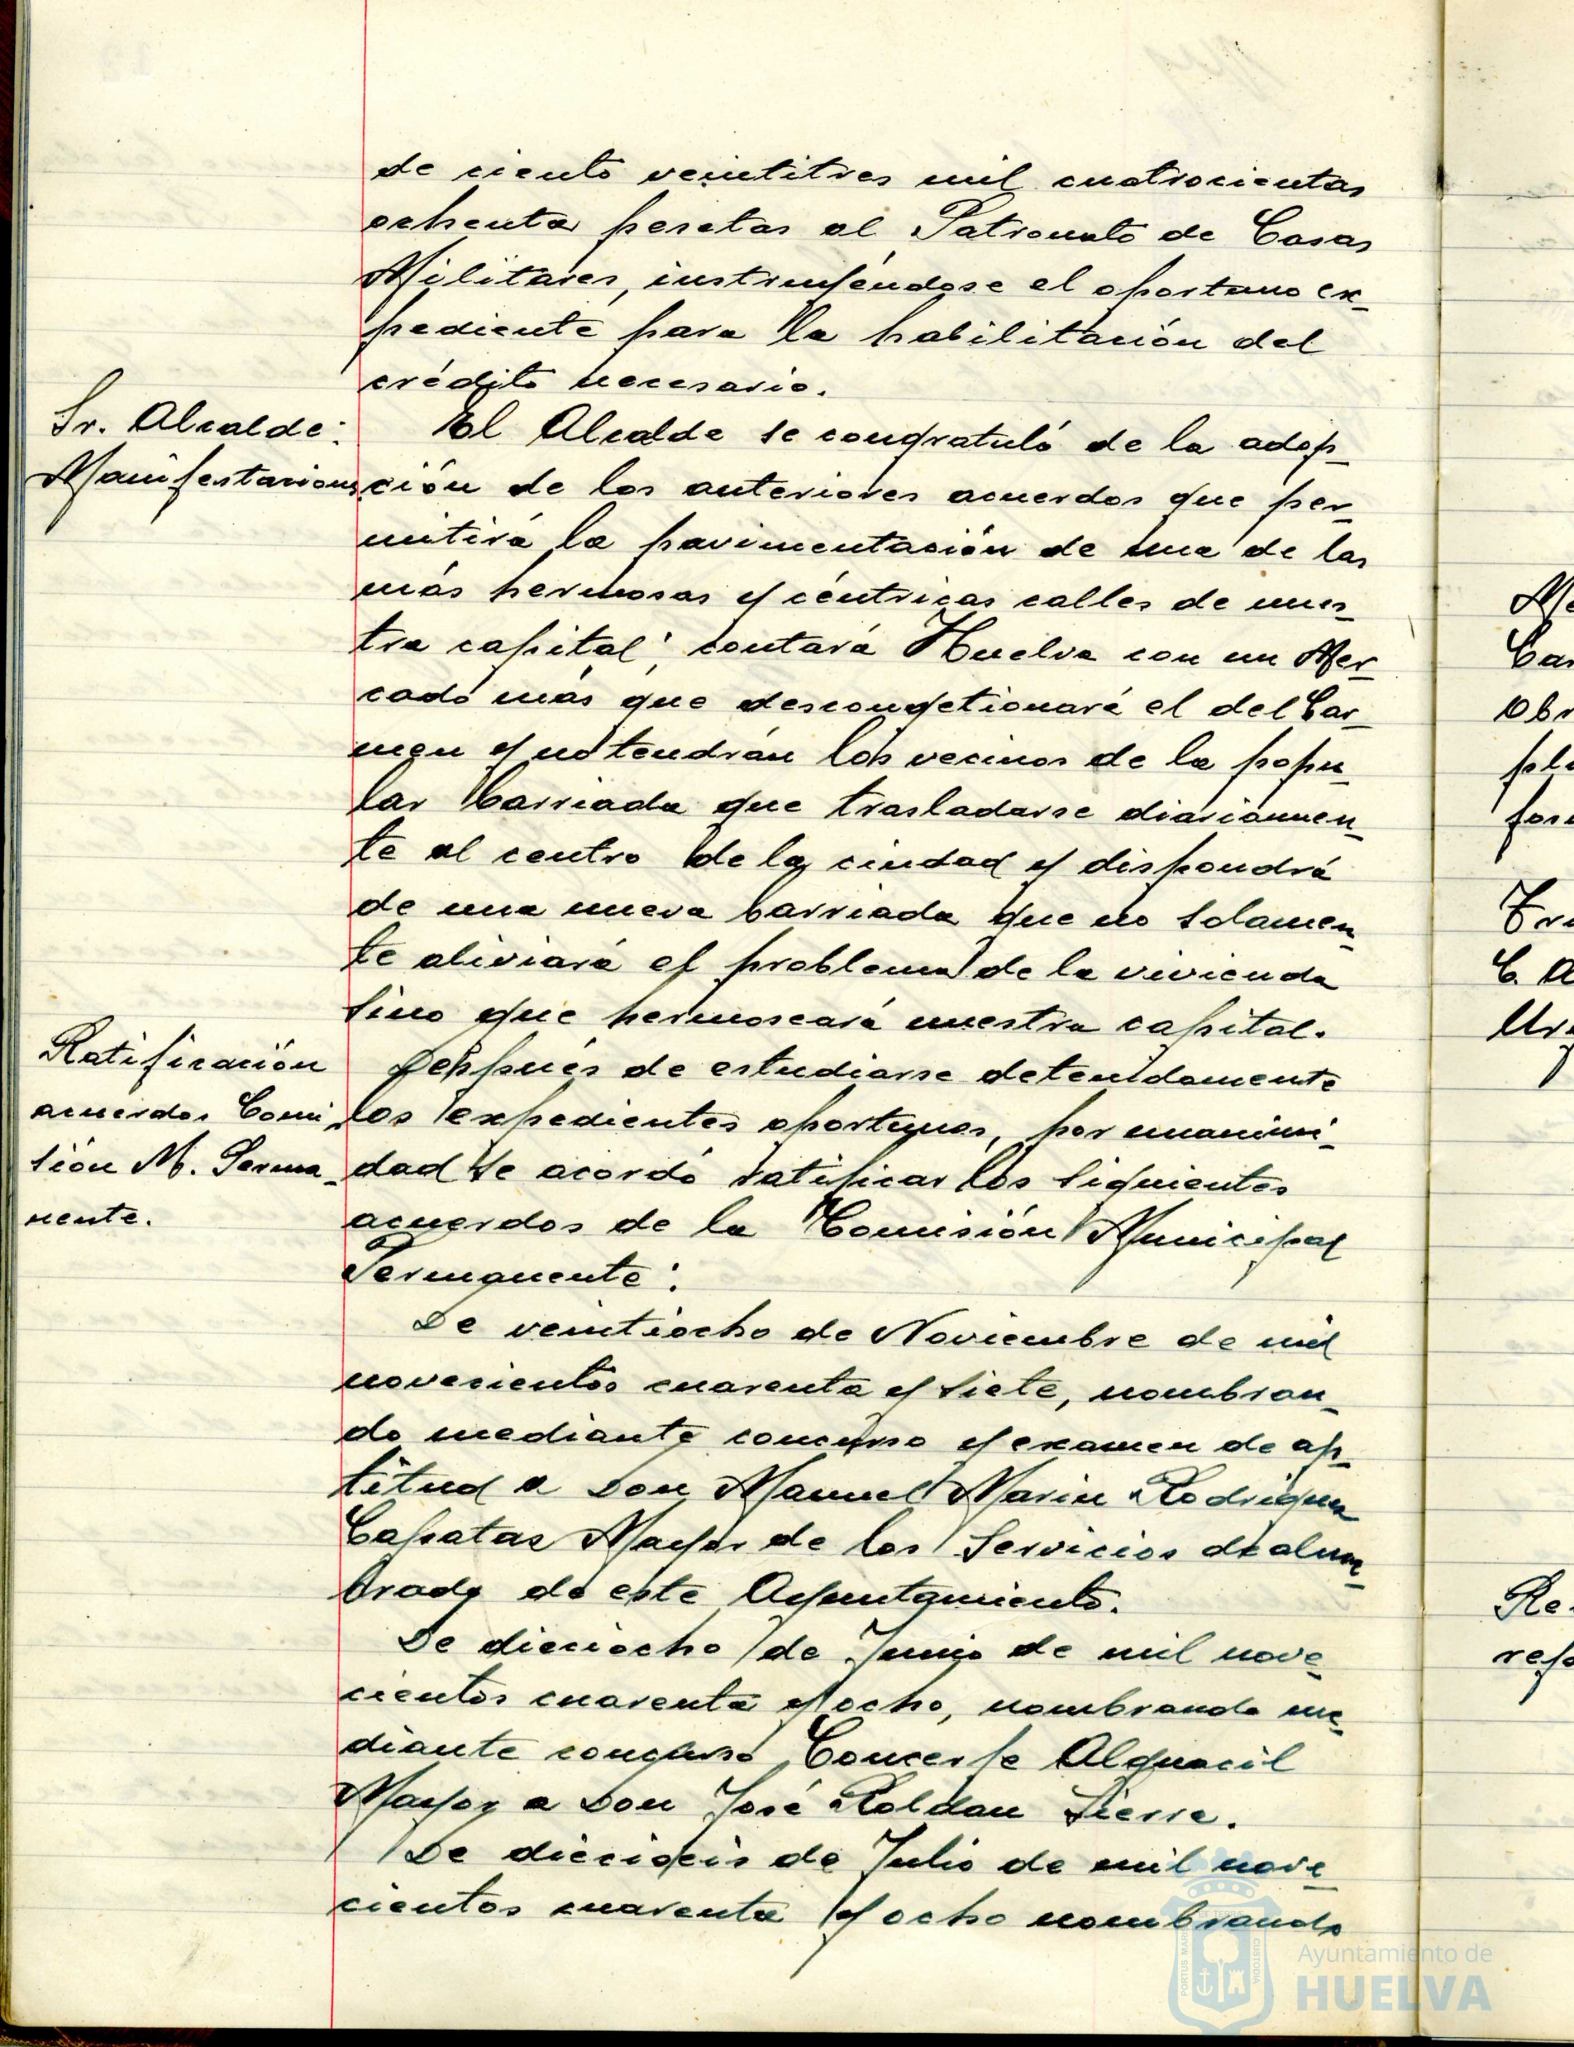 de ciento veintitres mil cuatrocientas
ochenta pesetas al Patronato de Casas
Militares, instruyéndose el oportuno ex-
pediente para la habilitación del
crédito necesario.
Sr. Alcalde:
Manifestaciones
El Alcalde se congratuló de la adop-
ción de los anteriores acuerdos que per-
mitirá la pavimentación de una de las
más hermosas y céntricas calles de nues-
tra capital; contará Huelva con un Mer-
cado más que descongetionará el del Car-
men y no tendrán los vecinos de la popu-
lar barriada que trasladarse diariamen-
te al centro de la ciudad y dispondrá
de una nueva barriada que no solamen-
te aliviará el problema de la vivienda
sino que hermoseará nuestra capital.
Ratificación
acuerdos Comi-
sión M. Perma-
nente.
Después de estudiarse detenidamente
los expedientes oportunos, por unanimi-
dad se acordó ratificar los siguientes
acuerdos de la Comisión Municipal
Permanente:
De veintiocho de Noviembre de mil
novecientos cuarenta y siete, nombran-
do mediante concurso y examen de ap-
titud a Don Manuel Marin Rodriguez
Capataz Mayor de los Servicios de alum-
brado de este Ayuntamiento.
De dieciocho de Junio de mil nove-
cientos cuarenta y ocho, nombrando me-
diante concurso Conserje Alguacil
Mayor a Don José Roldan Sierra.
De dieciseis de Julio de mil nove-
cientos cuarenta y ocho nombrando
Obr
C. A
Re
Ayuntamiento de
HUELVA
PORTUS MARIS
CUSTODIA